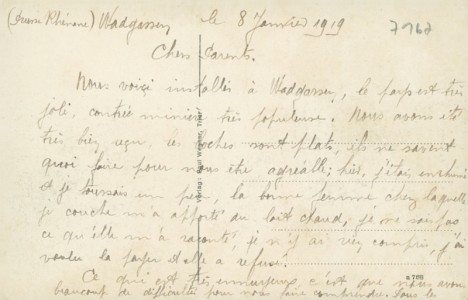 (Prusse Rhénane) Wadgassen, le 8 Janvier 1919
7967
Chers Parents.
Nous voiçi installés à Wadgassen, le pays est très
joli, contrée minière très populeuse. Nous avons été
très bien reçu, les boches sont plats, ils ne savent
quoi faire pour nous être agréable; hier, j'étais enrhumé
et je toussais un peu, la bonne femme chez laquelle
je couche m'a apporté du lait chaud; je ne sais pas
ce qu'elle m'a raconté, je n'y ai rien compris, j'ai
voulu la payer et elle a refusé.
Ce qui est très ennuyeux c'est que nous avons
beaucoup de difficultés pour nous faire comprendre. Tous les
Verlag: Trier
a 766